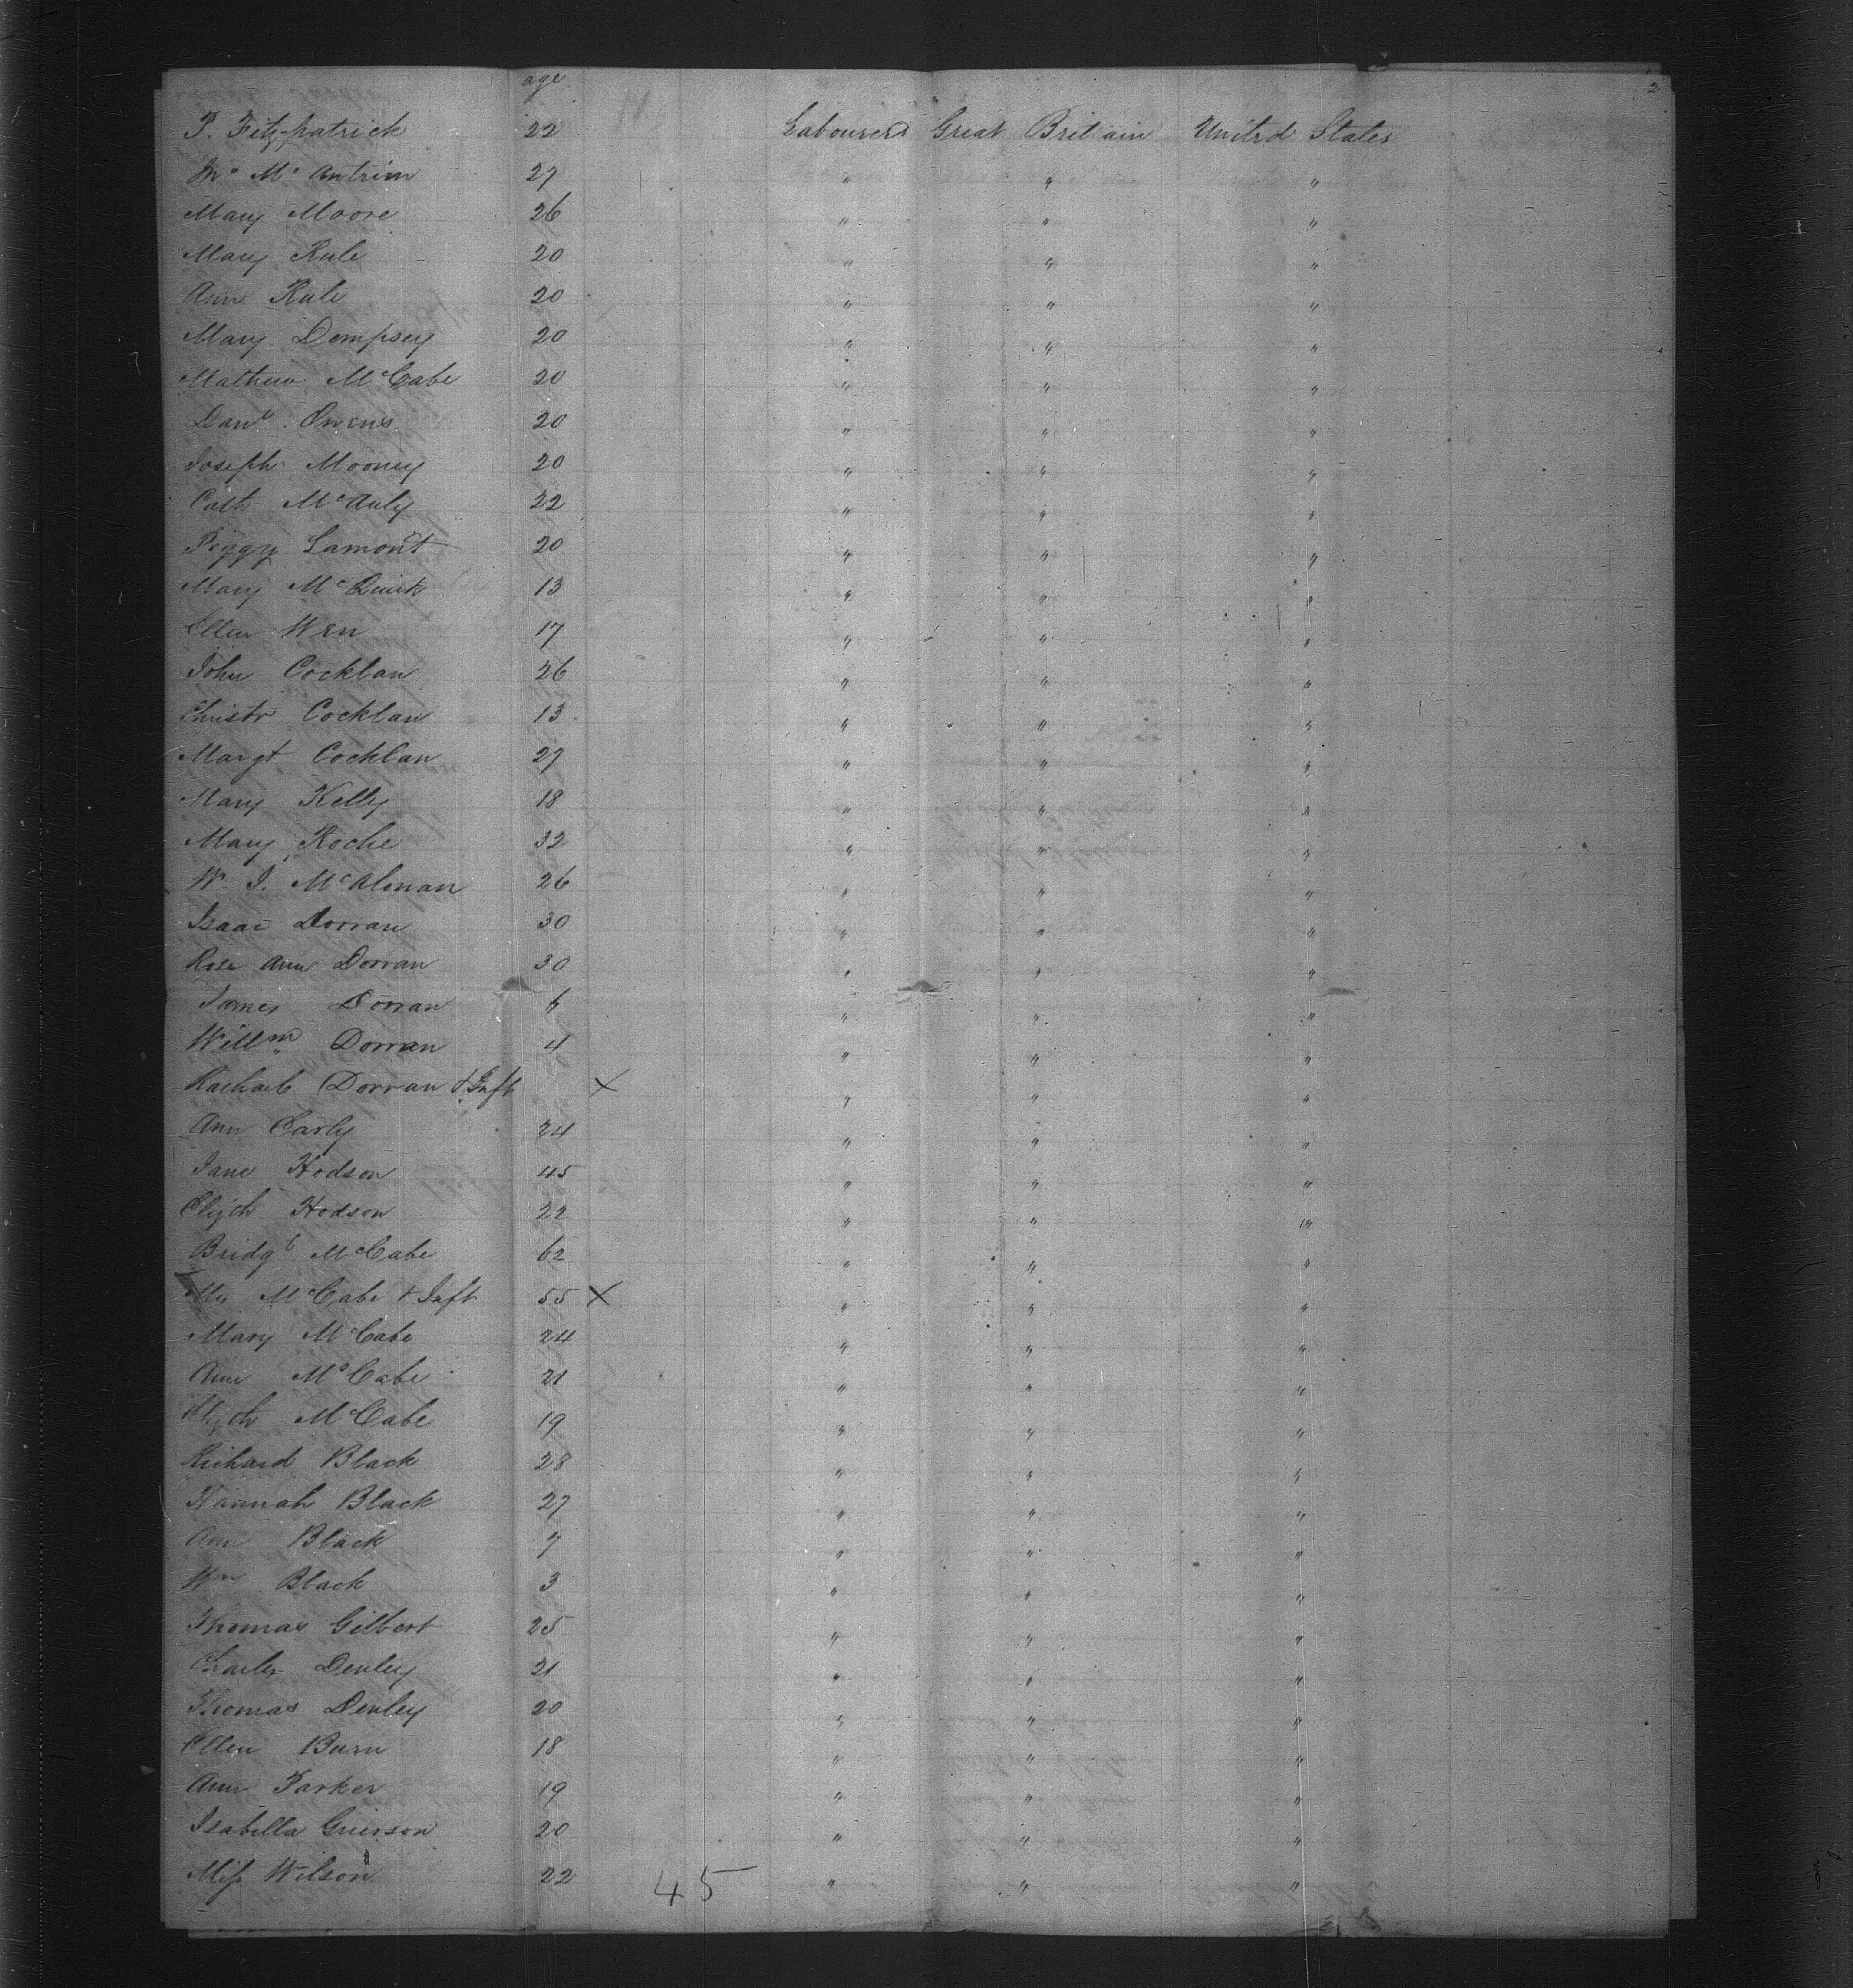 age 2
P. Fitzpatrick 22 Labourers Great Britain United States
Mc Antrim 27 " " "
Mary Moore 26 " " "
Mary Rule 20 " " "
Ann Rule 20 " " "
Mary Dempsey 20 " " "
Mathew McCabe 20 " " "
Danl. Owens 20 " " "
Joseph Mooney 20 " " "
Cath McAuly 22 " " "
Peggy Lamont 20 " " "
Mary McQuirk 13 " " "
Ellen Wen 17 " " "
John Cocklan 26 " " "
Christr Cocklan 13 " " "
Margt Cocklan 27 " " "
Mary Kelly 18 " " "
Mary Roche 32 " " "
W. J. McAlonan 26 " " "
Isaac Dorran 30 " " "
Rose Ann Dorran 30 " " "
James Dorran 6 " " "
Willm Dorran 4 " " "
Rachael Dorran & Inft X " " "
Ann Carly 24 " " "
Jane Hodson 45 " " "
Elizth Hodson 22 " " "
Bridgt McCabe 62 " " "
Mrs McCabe & Inft 55 X " " "
Mary McCabe 24 " " "
Ann McCabe 21 " " "
Elizth McCabe 19 " " "
Richard Black 28 " " "
Hannah Black 27 " " "
Ann Black 7 " " "
Wm Black 3 " " "
Thomas Gilbert 25 " " "
Charles Denley 21 " " "
Thomas Denley 20 " " "
Ellen Burn 18 " " "
Ann Parker 19 " " "
Isabella Grierson 20 " " "
Miss Wilson 22 45 " " "